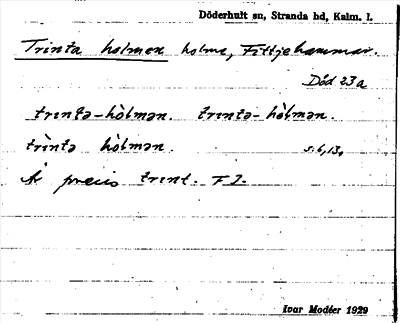 Döderhult sn, Stranda hd, Kalm. l.
Trinta holmen holme, Fittjehammar.
Död 23a
trenta-hòlmən. trenta-hòlmən.
trìnta hòlmən. s. 6, 13.
Är precis trint. F J.
Ivar Modéer 1929